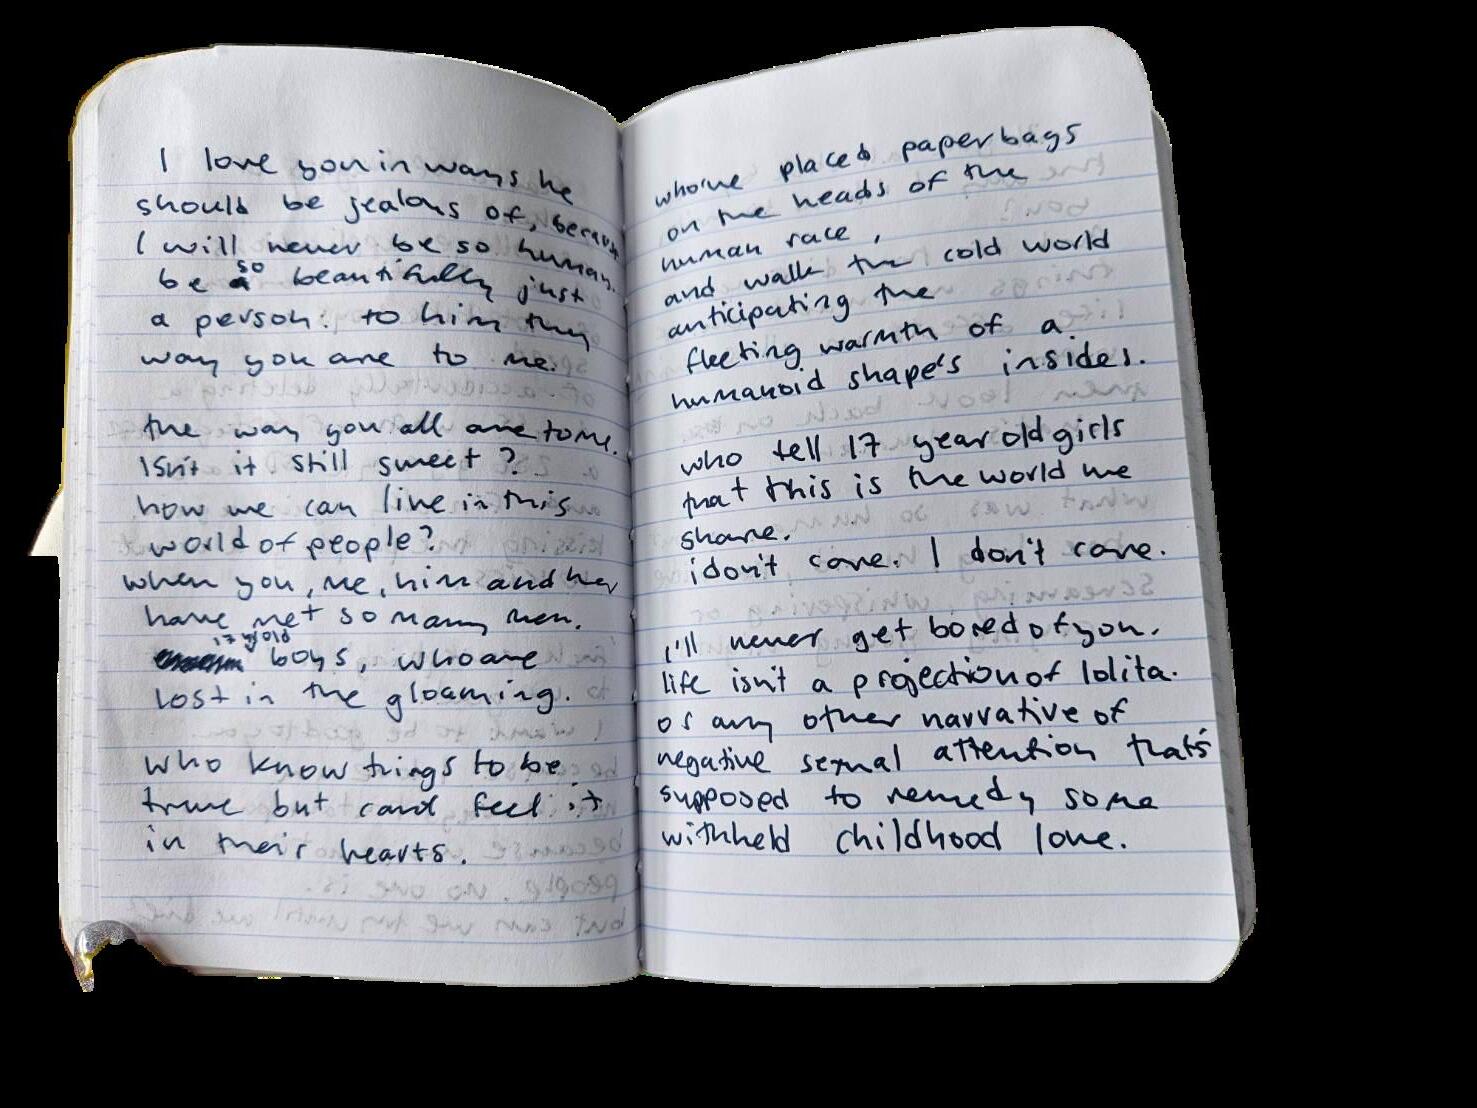 I love you in ways he
should be jealous of, because
I will never be so human.
be so beautifully just
a person. to him they
way you are to me.
the way you all are to me.
Isn't it still sweet?
how we can live in this
world of people?
when you, me, him and her
have met so many men.
17 yr old boys, who are
lost in the gloaming.
who know things to be
true but cand feel it
in their hearts.
who've placed paperbags
on the heads of the
human race,
and walk the cold world
anticipating the
fleeting warmth of a
humanoid shape's insides.
who tell 17 year old girls
that this is the world we
share.
i don't care. I don't care.
i'll never get bored of you.
life isn't a projection of lolita.
or any other narrative of
negative sexual attention that's
supposed to remedy some
withheld childhood love.